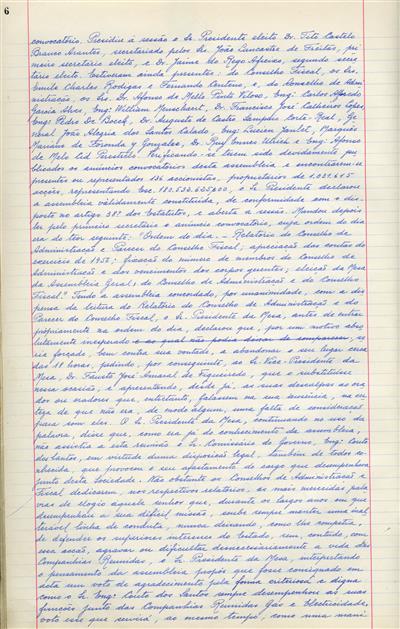 6
convocatório. Presidiu à sessão o Sr. Presidente eleito Dr. Tito Castelo
Branco Arantes, secretariado pelos Srs. João Lancastre de Freitas, pri
meiro secretário eleito, e Dr. Jaime do Rego Afreixo, segundo secre
tário eleito. Estiveram ainda presentes: do Conselho Fiscal, os Srs.
Emile Charles Rodigas e Fernando Centeno, e do Conselho de Admi
nistração, os Srs. Dr. Afonso de Melo Pinto Veloso, Engº Carlos
Garcia Alves, Engº William Dr. Francisco José Calheiros Lopes,
Engº Pedro De Bock, Dr. Augusto de Castro Sampaio Corte-Real, Ge
neral João Alegria dos Santos Calado, Engº Lucien Marquês
Mariano de Foronda y Gonzalez, Dr. Ruy Ennes Ulrich e Engº Afonso
de Melo Cid Perestrelo. Verificando-se terem sido devidamente pu
blicados os anúncios convocatórios desta assembleia e encontrarem-se
presentes ou representados 136 accionistas, proprietários de
acções, representando Esc. o Sr. Presidente declarou
a assembleia vàlidamente constituída, de conformidade com o dis-
posto no artigo 38º dos Estatutos, e aberta a sessão. Mandou depois
ler pelo primeiro secretário o anúncio convocatório, cuja ordem do dia
era do teor seguinte: "Ordem do dia - Relatório do Conselho de
Administração e Parecer do Conselho Fiscal; apreciação das contas do
exercício de 1956; fixação do número de membros do Conselho de
Administração e dos vencimentos dos corpos gerentes; eleição da Mesa
da Assembleia Geral, do Conselho de Administração e do Conselho
Fiscal." Tendo a assembleia concordado, por unanimidade, com a dis
pensa de leitura do Relatório do Conselho de Administração e do
Parecer do Conselho Fiscal, o Sr. Presidente da Mesa, antes de entrar
pròpriamente na ordem do dia, declarou que, por um motivo abso
lutamente inesperado e ao qual não podia deixar de comparecer, se
ria forçado, bem contra sua vontade, a abandonar o seu lugar cerca
das 18 horas, pedindo, por conseguinte, ao Sr. Vice-Presidente da
Mesa, Dr. Fausto José Amaral de Figueiredo, que o substituisse
nessa ocasião, e apresentando, desde já, as suas desculpas ao ora
dor ou oradores que, entretanto, falassem na sua ausência, na cer
teza de que não era, de modo algum, uma falta de consideração
para com eles. O Sr. Presidente da Mesa, continuando no uso da
palavra, disse que, como era já do conhecimento da assembleia,
não assistia a esta reunião o Sr. Comissário do Governo, Engº Couto
dos Santos, em virtude duma disposição legal, também de todos co
nhecida, que provocou o seu afastamento do cargo que desempenhava
junto desta Sociedade. Não obstante os Conselhos de Administração e
Fiscal dedicarem, nos respectivos relatórios, as mais merecidas pala
vras de elogio àquele senhor que, durante os largos anos em que
desempenhou a sua difícil missão, soube sempre manter uma inal
terável linha de conduta, nunca deixando, como lhe competia,
de defender os superiores interesses do Estado, sem, contudo, com
essa acção, agravar ou dificultar desnecessàriamente a vida das
Companhias Reunidas, o Sr. Presidente da Mesa, interpretando
o pensamento da assembleia propôs que fosse consignado em
acta um voto de agradecimento pela forma criteriosa e digna
como o Sr. Engº Couto dos Santos sempre desempenhou as suas
funções junto das Companhias Reunidas Gás e Electricidade,
voto esse que servirá, ao mesmo tempo, como uma mani